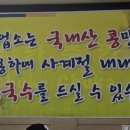 업소는 국내산 콩만
름하에 사계절 내내
국수를 드실 수 있습